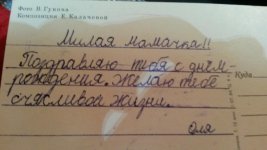 Фото В. Гукова
Композиция Е. Калачевой
Милая мамачка!!
Поздравляю тебя с днём-
рождения. Желаю тебе
счясливой жизни.
Оля
Куда